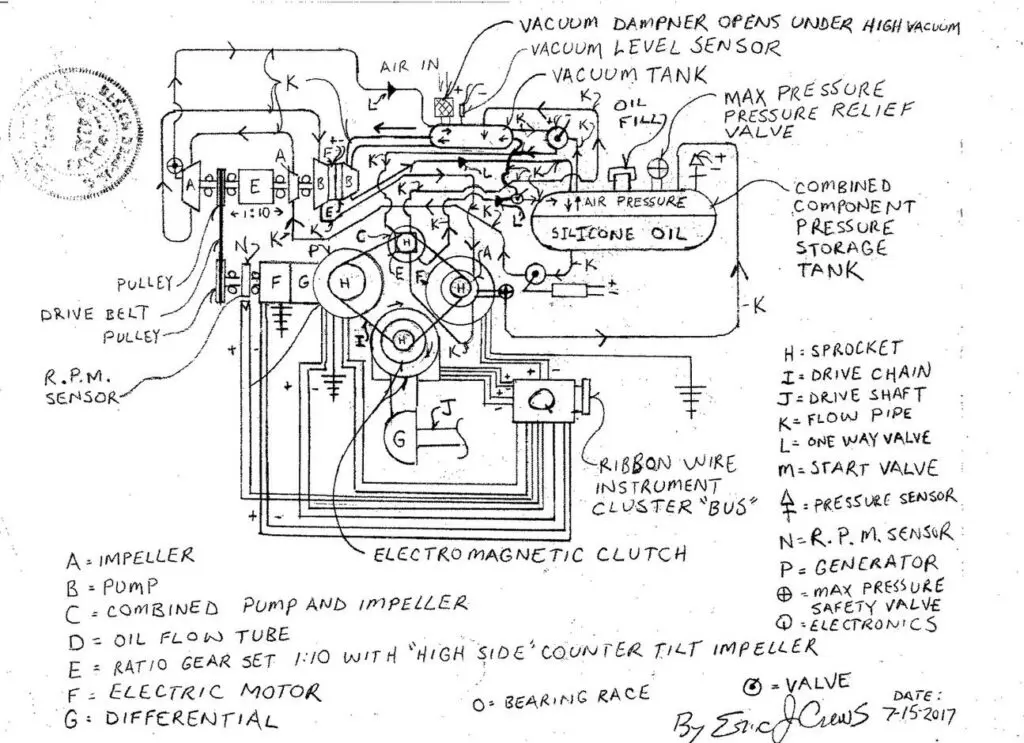 VACUUM DAMPNER OPENS UNDER HIGH VACUUM
VACUUM LEVEL SENSOR
AIR IN
VACUUM TANK
K
L
OIL FILL
MAX PRESSURE
PRESSURE RELIEF
VALVE
COMBINED
COMPONENT
PRESSURE
STORAGE
TANK
AIR PRESSURE
SILICONE OIL
A
E
1:10
A
B
B
F
E
K
P
N
C
H
E
F
A
H
F
G
H
H
I
K
PULLEY
DRIVE BELT
PULLEY
R.P.M.
SENSOR
G
J
Q
RIBBON WIRE
INSTRUMENT
CLUSTER "BUS"
ELECTROMAGNETIC CLUTCH
H = SPROCKET
I = DRIVE CHAIN
J = DRIVE SHAFT
K = FLOW PIPE
L = ONE WAY VALVE
M = START VALVE
= PRESSURE SENSOR
N = R.P.M. SENSOR
P = GENERATOR
⊕ = MAX PRESSURE
SAFETY VALVE
Q = ELECTRONICS
A = IMPELLER
B = PUMP
C = COMBINED PUMP AND IMPELLER
D = OIL FLOW TUBE
E = RATIO GEAR SET 1:10 WITH "HIGH SIDE" COUNTER TILT IMPELLER
F = ELECTRIC MOTOR
G = DIFFERENTIAL
O = BEARING RACE
= VALVE
By Eric J Crews
DATE:
7-15-2017